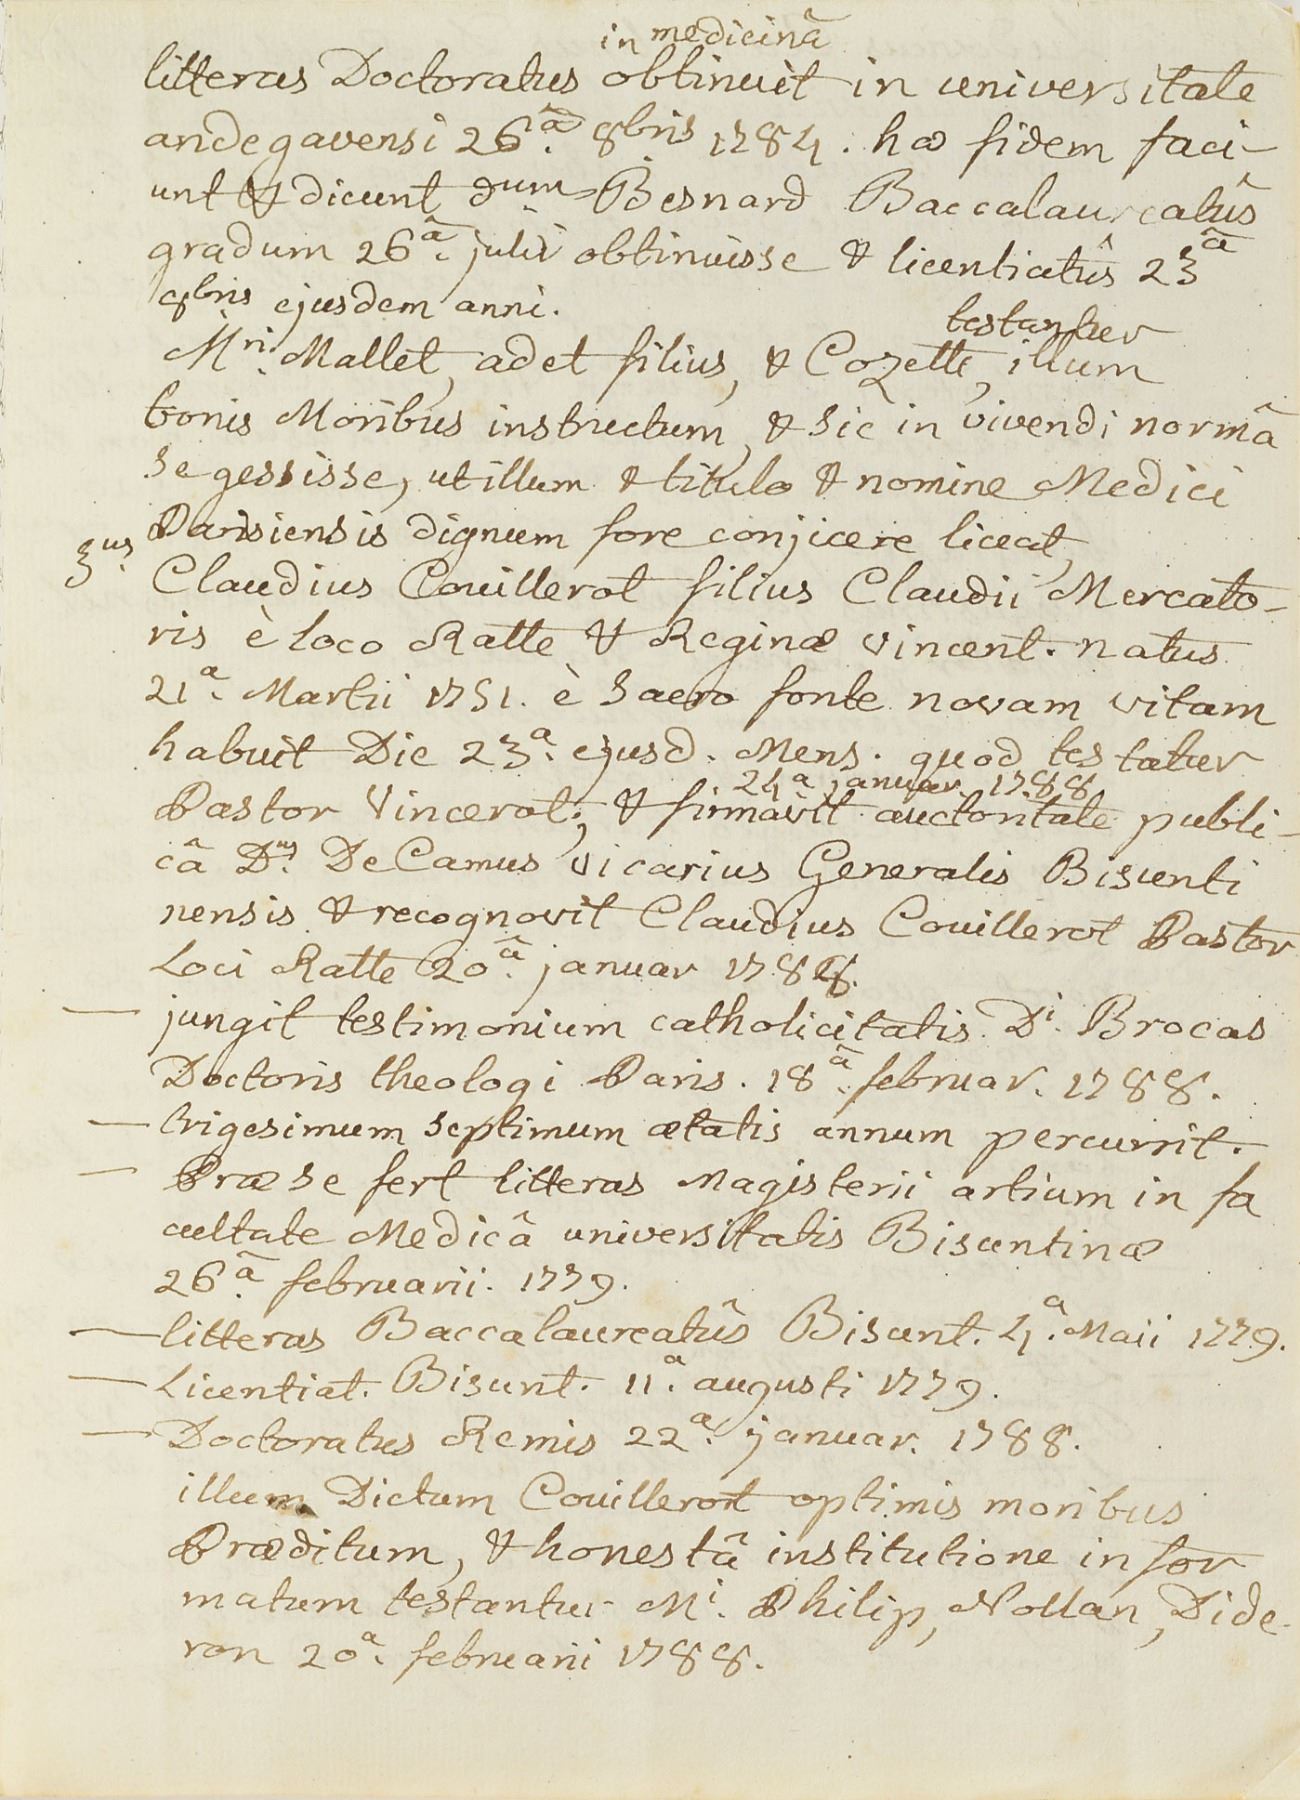 in medicinâ
litteras Doctoratus obtinuit in universitate
andegavensi 26.â 8bris 1784. hæ fidem faci-
unt & dicunt dum Besnard Baccalaureatûs
gradum 26.â julii obtinuisse & licentiatûs 23â
8bris ejusdem anni.
testantur
Mri. Mallet, adet filius, & Cozette, illum
bonis Moribus instructum, & sic in vivendi normâ
se gessisse, ut illum & titulo & nomine Medici
Parisiensis dignum fore conjicere liceat,
3us.
Claudius Couillerot filius Claudii Mercato-
ris è loco Ratte & Reginæ vincent. natus
21a. Martii 1751. è Sacro fonte novam vitam
habuit Die 23.a ejusd. Mens. quod testatur
24.a januar. 1788
Pastor Vincerot; & firmavit auctoritate publi-
câ Dus. De Camus vicarius Generalis Bisunti
nensis & recognovit Claudius Couillerot Pastor
Loci Ratte 20.â januar 1788.
— jungit testimonium catholicitatis Di. Brocas
Doctoris theologi Paris. 18.â februar. 1788.
— trigesimum septimum ætatis annum percurrit.
— Præ se fert litteras Magisterii artium in fa
cultate Medicâ universitatis Bisuntinæ
26.â februarii. 1779.
— litteras Baccalaureatûs Bisunt. 4.a Maii 1779.
— Licentiat. Bisunt. 11.a augusti 1779.
— Doctoratus Remis 22a. januar. 1788.
illum Dictum Couillerot optimis moribus
Præditum, & honestâ institutione infor
matum testantur Mi. Philip, Nollan, Dide-
ron 20a. februarii 1788.